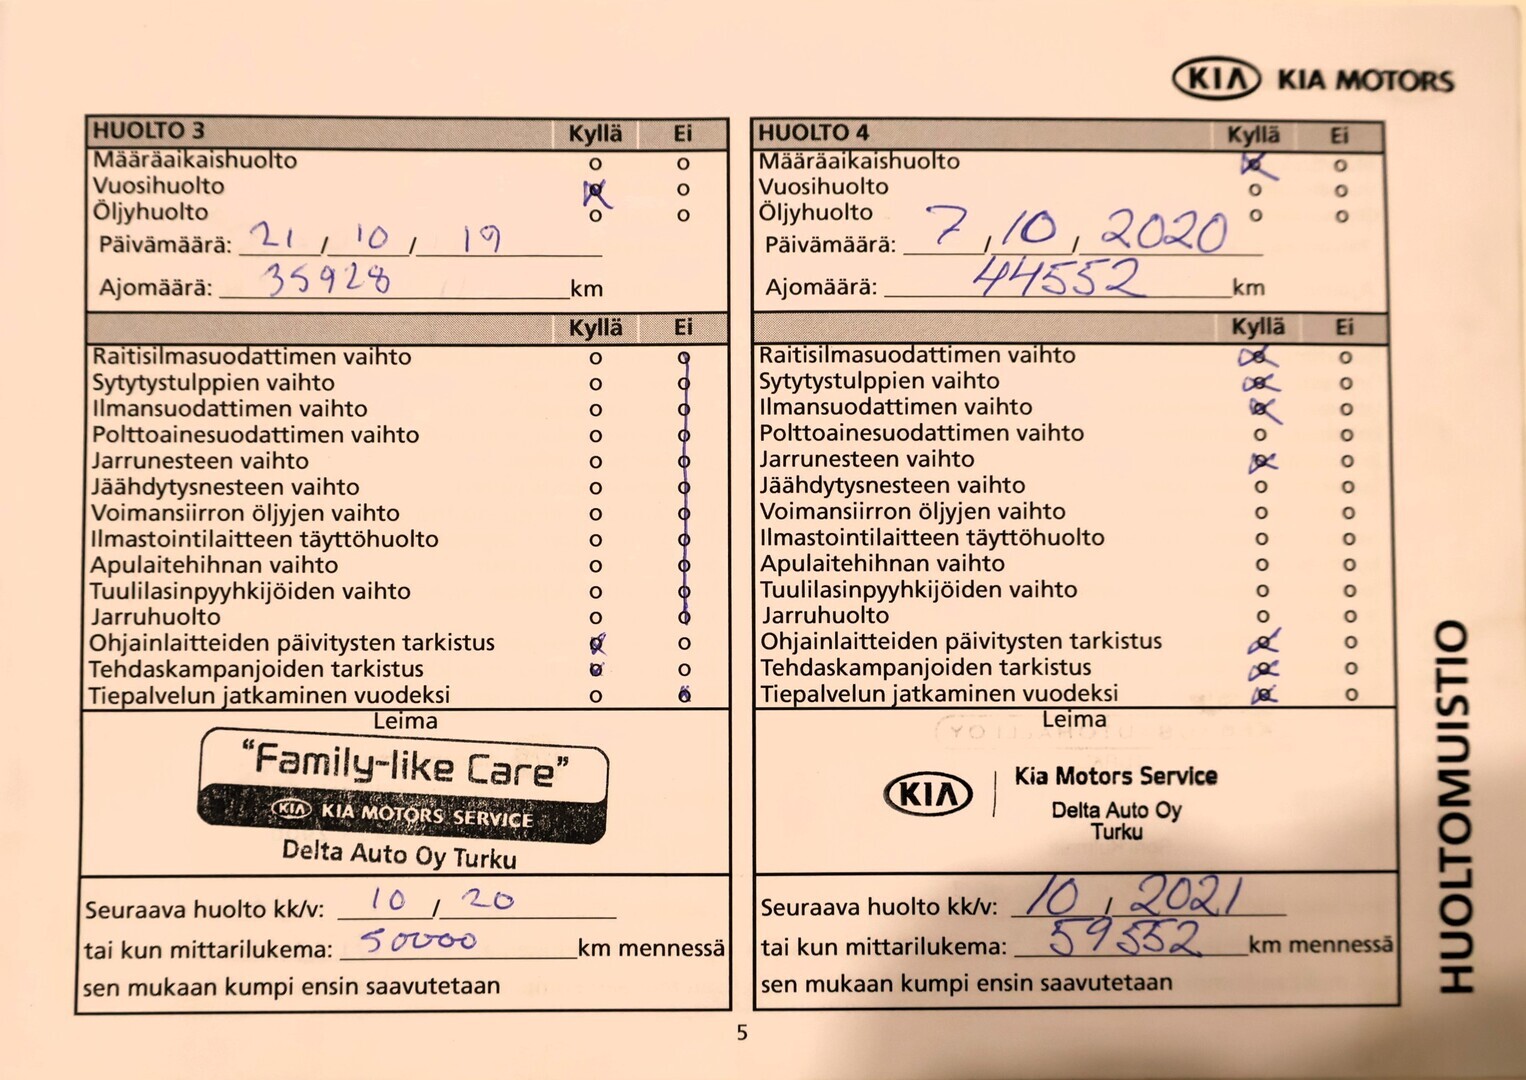 KIA KIA MOTORS
HUOLTO 3 Kyllä Ei
Määräaikaishuolto o o
Vuosihuolto o o
Öljyhuolto o o
Päivämäärä: 21 / 10 / 19
Ajomäärä: 35928 km
Kyllä Ei
Raitisilmasuodattimen vaihto o o
Sytytystulppien vaihto o o
Ilmansuodattimen vaihto o o
Polttoainesuodattimen vaihto o o
Jarrunesteen vaihto o o
Jäähdytysnesteen vaihto o o
Voimansiirron öljyjen vaihto o o
Ilmastointilaitteen täyttöhuolto o o
Apulaitehihnan vaihto o o
Tuulilasinpyyhkijöiden vaihto o o
Jarruhuolto o o
Ohjainlaitteiden päivitysten tarkistus o o
Tehdaskampanjoiden tarkistus o o
Tiepalvelun jatkaminen vuodeksi o o
Leima
"Family-like Care"
KIA KIA MOTORS SERVICE
Delta Auto Oy Turku
Seuraava huolto kk/v: 10 / 20
tai kun mittarilukema: 50000 km mennessä
sen mukaan kumpi ensin saavutetaan
HUOLTO 4 Kyllä Ei
Määräaikaishuolto o o
Vuosihuolto o o
Öljyhuolto o o
Päivämäärä: 7 / 10 / 2020
Ajomäärä: 44552 km
Kyllä Ei
Raitisilmasuodattimen vaihto o o
Sytytystulppien vaihto o o
Ilmansuodattimen vaihto o o
Polttoainesuodattimen vaihto o o
Jarrunesteen vaihto o o
Jäähdytysnesteen vaihto o o
Voimansiirron öljyjen vaihto o o
Ilmastointilaitteen täyttöhuolto o o
Apulaitehihnan vaihto o o
Tuulilasinpyyhkijöiden vaihto o o
Jarruhuolto o o
Ohjainlaitteiden päivitysten tarkistus o o
Tehdaskampanjoiden tarkistus o o
Tiepalvelun jatkaminen vuodeksi o o
Leima
KIA Kia Motors Service
Delta Auto Oy
Turku
Seuraava huolto kk/v: 10 / 2021
tai kun mittarilukema: 59552 km mennessä
sen mukaan kumpi ensin saavutetaan
HUOLTOMUISTIO
5